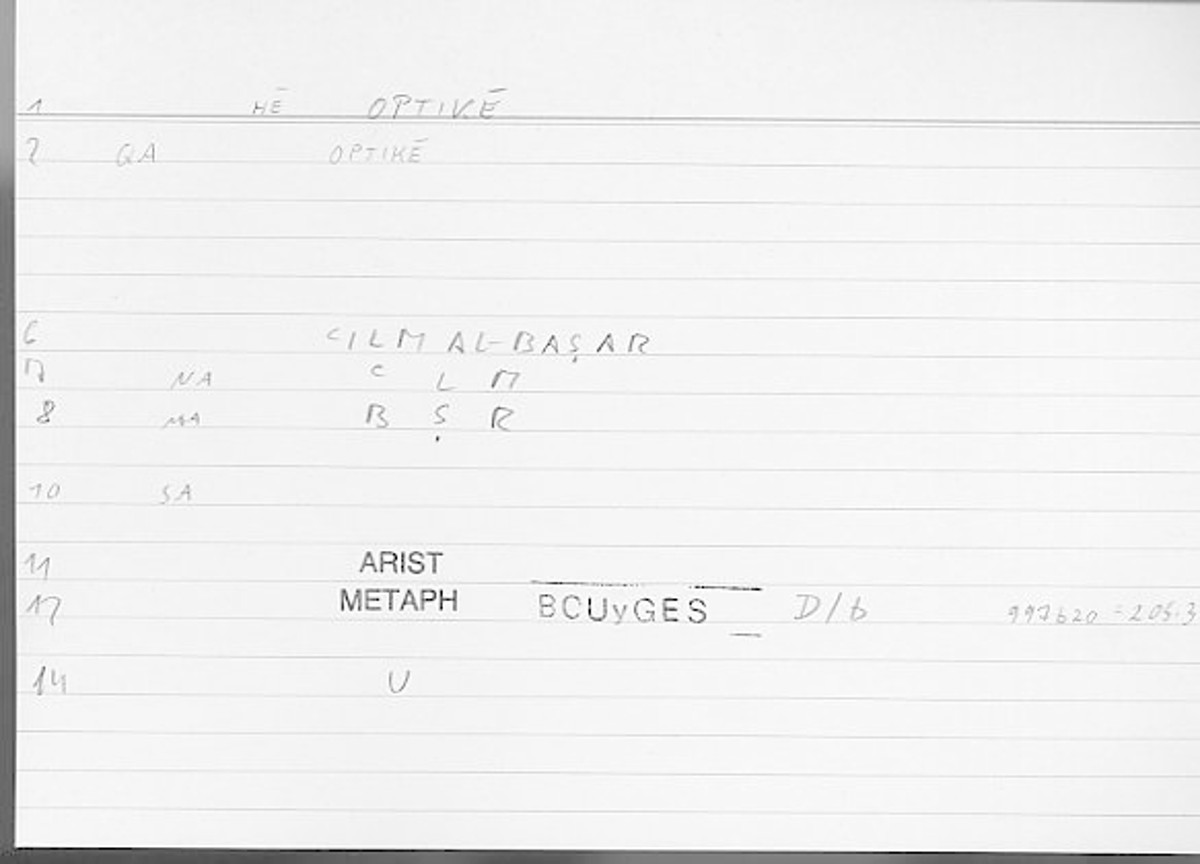 1 HĒ OPTIKĒ
2 QA OPTIKĒ
6 ʿILM AL-BAṢAR
7 NA ʿ L M
8 MA B Ṣ R
10 SA
11 ARIST
12 METAPH BOUyGES D/b 997b20 = 205.3
14 U